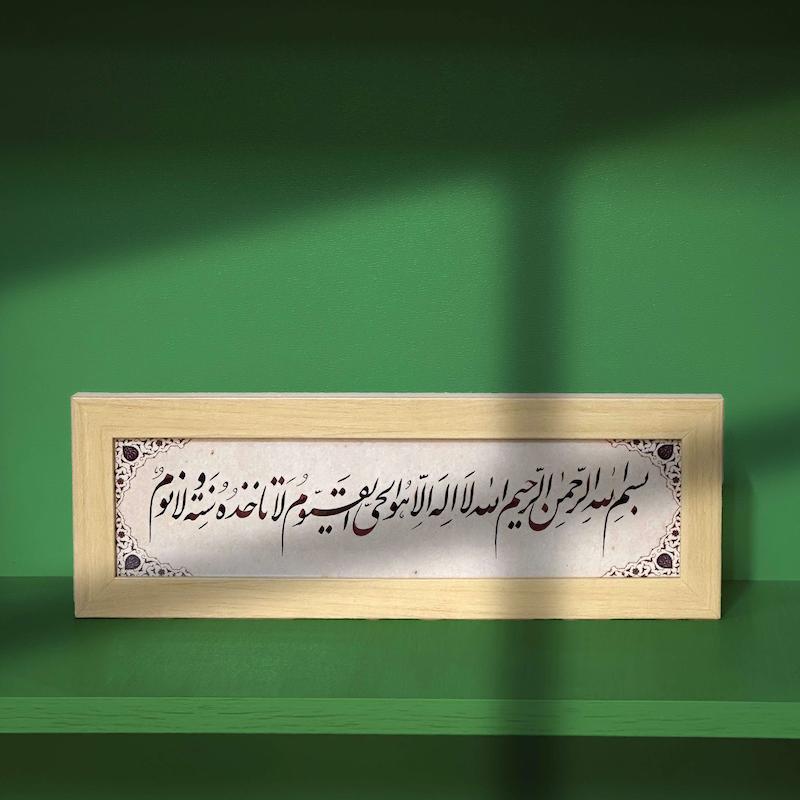 بسم الله الرحمن الرحیم الله لا اله الا هو الحی القیوم لا تاخذه سنة و لا نوم